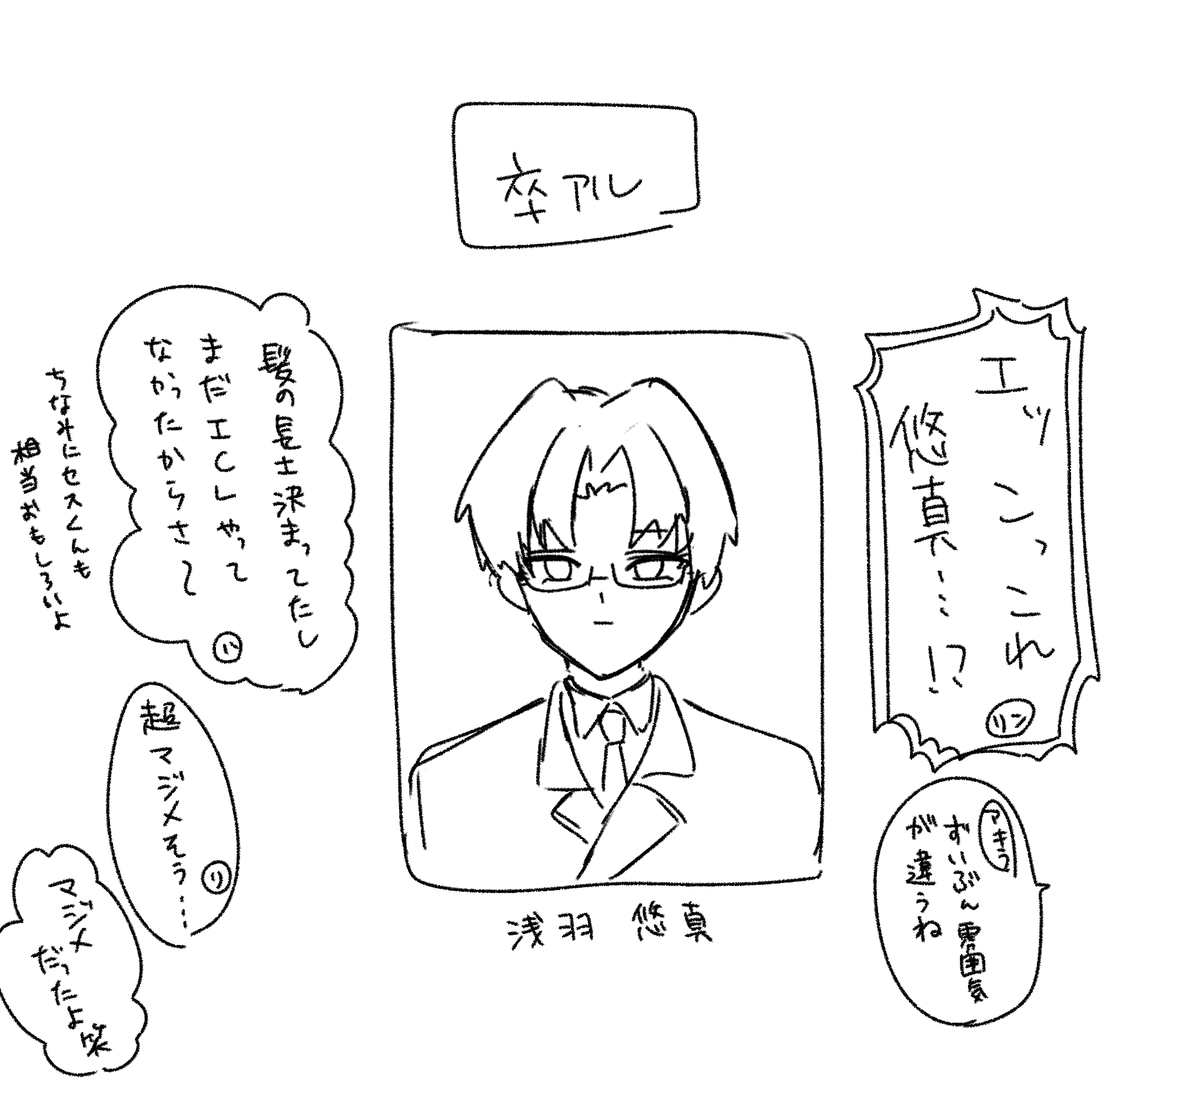 卒アル
エッ こっこれ
悠真…!?
リン
アキラ
ずいぶん雰囲気
が違うね
髪の長さ決まってたし
まだエCしやって
なかったからさ〜
ハ
ちなみにセスくんも
相当おもしろいよ
超マジメそう…
リ
マジメ
だったよ笑
浅羽 悠真